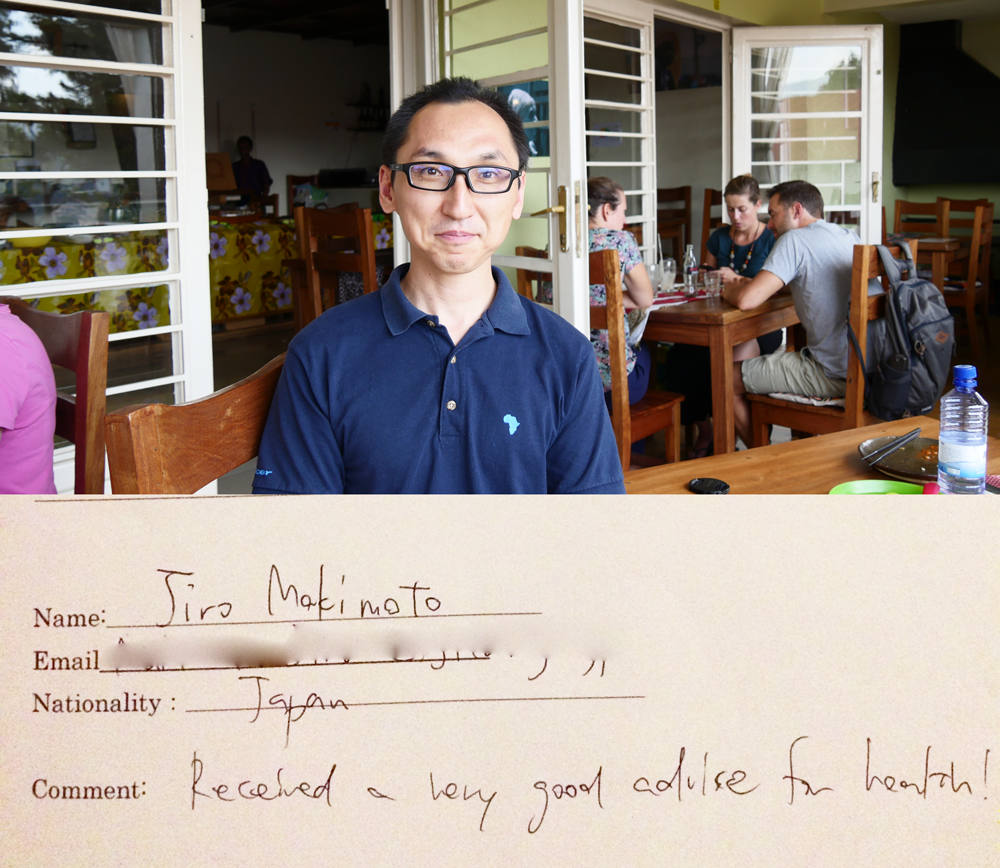 Name: Jiro Makimoto
Email
Nationality : Japan
Comment: Received a very good advise for health!